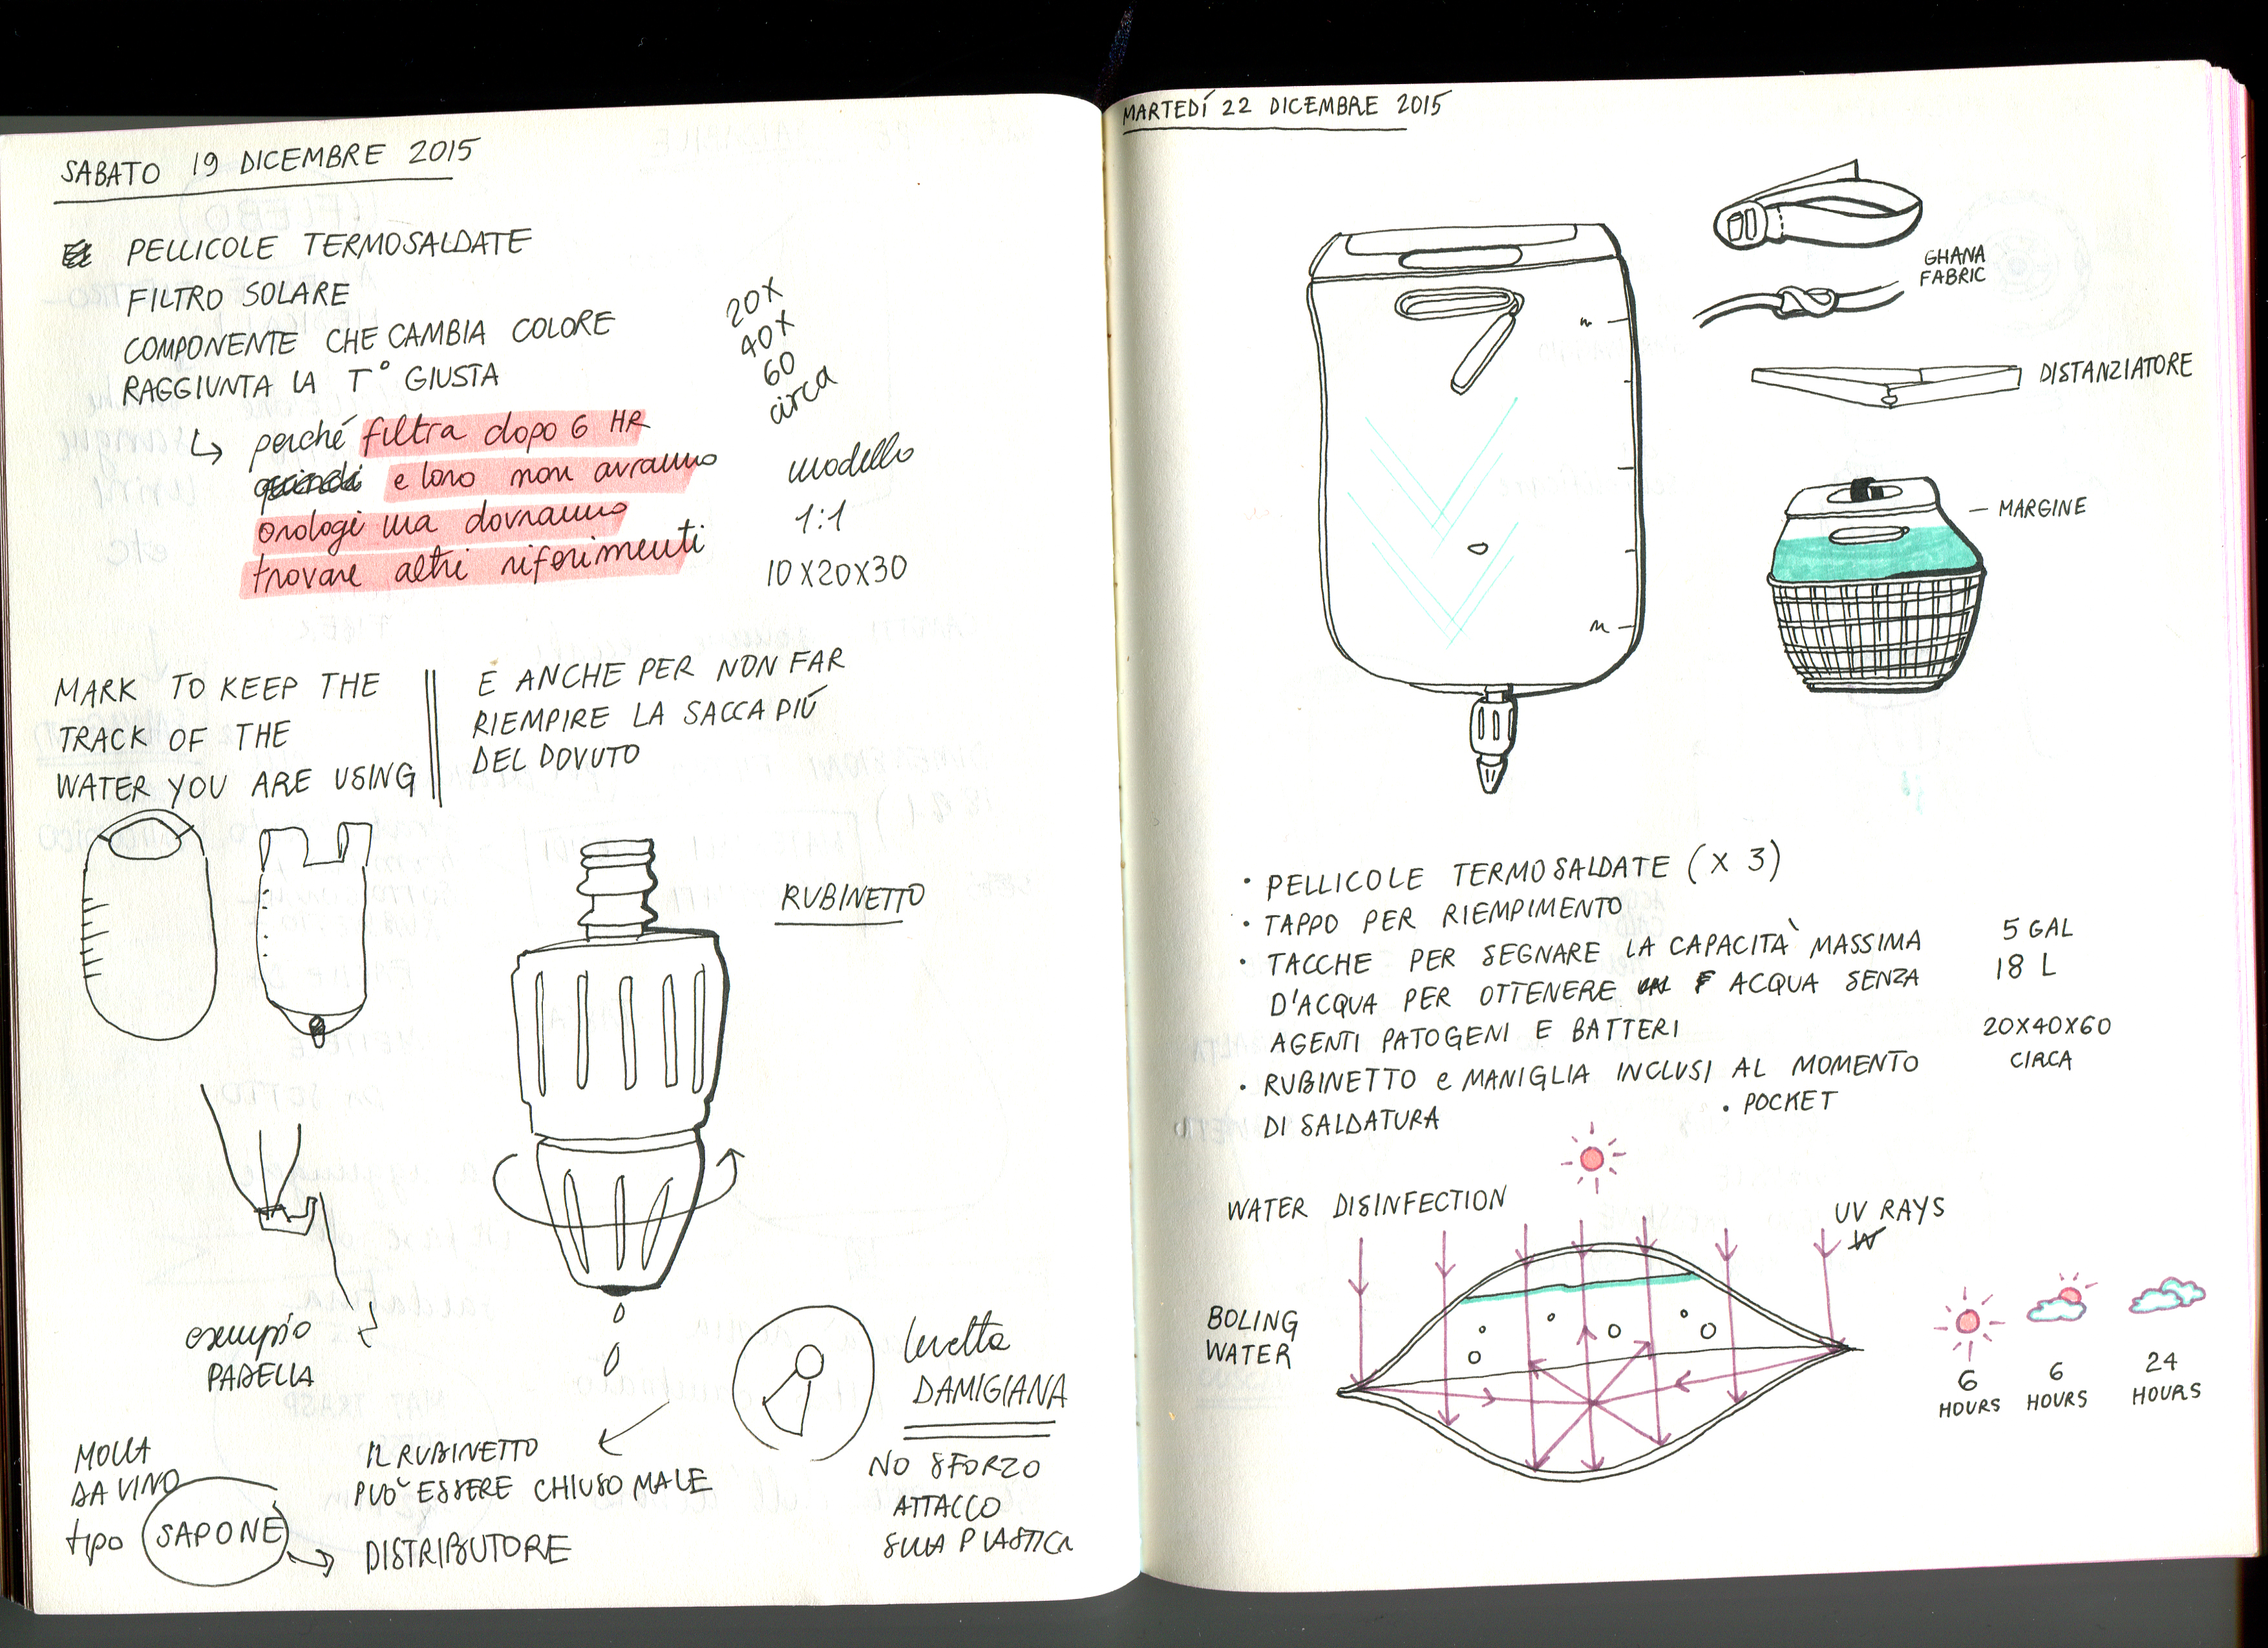 SABATO 19 DICEMBRE 2015
PELLICOLE TERMOSALDATE
FILTRO SOLARE
COMPONENTE CHE CAMBIA COLORE
RAGGIUNTA LA T° GIUSTA
↳ perché filtra dopo 6 HR
quindi e loro non avranno
orologi ma dovranno
trovare altri riferimenti
20X
40X
60
circa
modello
1:1
10X20X30
MARK TO KEEP THE
TRACK OF THE
WATER YOU ARE USING
E ANCHE PER NON FAR
RIEMPIRE LA SACCA PIÚ
DEL DOVUTO
RUBINETTO
esempio
PADELLA
levetta
DAMIGIANA
NO SFORZO
ATTACCO
SULLA PLASTICA
IL RUBINETTO
PUO' ESSERE CHIUSO MALE
MOLLA
DA VINO
tipo SAPONE → DISTRIBUTORE
MARTEDÍ 22 DICEMBRE 2015
GHANA
FABRIC
DISTANZIATORE
MARGINE
• PELLICOLE TERMOSALDATE (X 3)
• TAPPO PER RIEMPIMENTO
• TACCHE PER SEGNARE LA CAPACITA' MASSIMA
D'ACQUA PER OTTENERE ACQUA SENZA
AGENTI PATOGENI E BATTERI
• RUBINETTO e MANIGLIA INCLUSI AL MOMENTO
DI SALDATURA
• POCKET
5 GAL
18 L
20X40X60
CIRCA
WATER DISINFECTION
UV RAYS
BOLING
WATER
6
HOURS
6
HOURS
24
HOURS